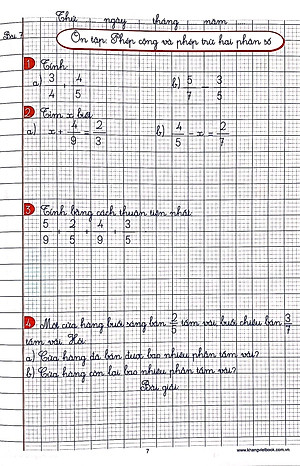 Thứ ngày tháng năm
Bài 7
Ôn tập: Phép cộng và phép trừ hai phân số
1 Tính:
a) 3/4 + 4/5 b) 5/7 - 3/5
2 Tìm x biết:
a) x + 4/9 = 2/3 b) 4/5 - x = 2/7
3 Tính bằng cách thuận tiện nhất:
5/9 + 2/5 + 4/9 + 3/5
4 Một cửa hàng buổi sáng bán 2/5 tấm vải, buổi chiều bán 3/7
tấm vải. Hỏi:
a) Cửa hàng đã bán được bao nhiêu phần tấm vải?
b) Cửa hàng còn lại bao nhiêu phần tấm vải?
Bài giải
7
www.khangvietbook.com.vn